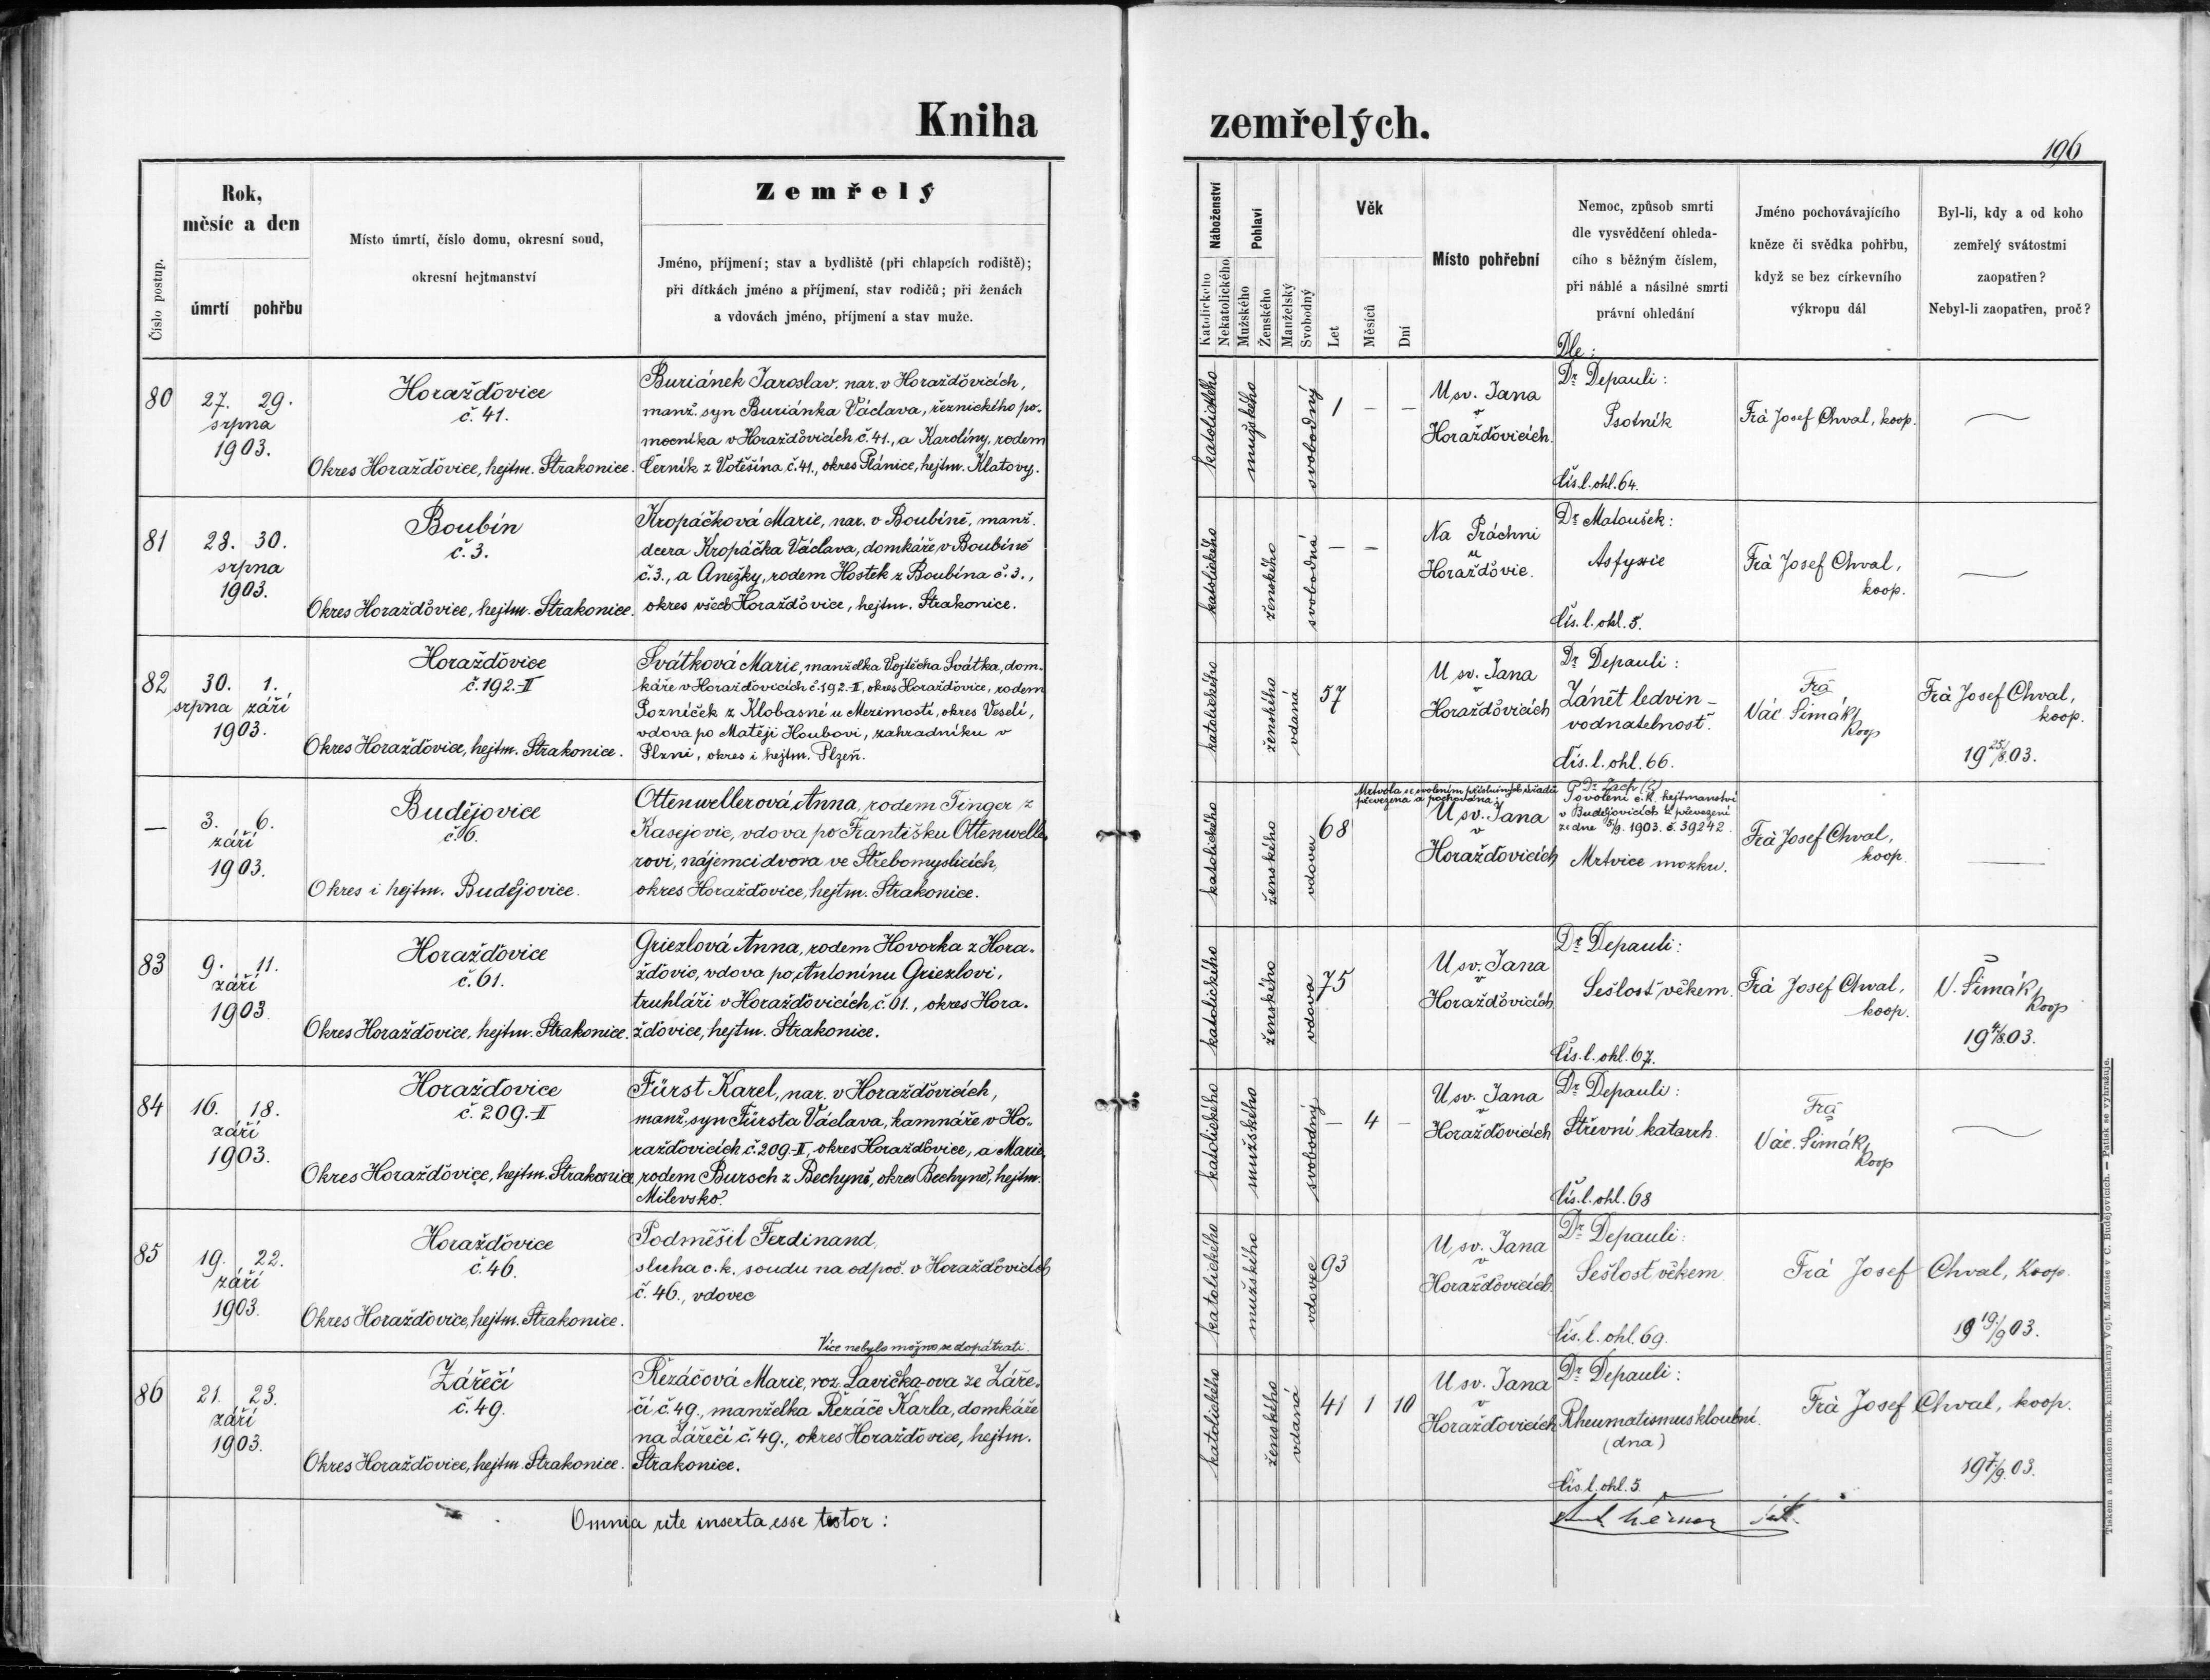 Kniha zemřelých.
196
Číslo postup.
Rok,
měsíc a den
úmrtí pohřbu
Místo úmrtí, číslo domu, okresní soud,
okresní hejtmanství
Zemřelý
Jméno, příjmení; stav a bydliště (při chlapcích rodiště);
při dítkách jméno a příjmení, stav rodičů; při ženách
a vdovách jméno, příjmení a stav muže.
Náboženství
Katolického
Nekatolického
Pohlaví
Mužského
Ženského
Manželský
Svobodný
Věk
Let
Měsíců
Dní
Místo pohřební
Nemoc, způsob smrti
dle vysvědčení ohleda-
cího s běžným číslem,
při náhlé a násilné smrti
právní ohledání
Jméno pochovávajícího
kněze či svědka pohřbu,
když se bez církevního
výkropu dál
Byl-li, kdy a od koho
zemřelý svátostmi
zaopatřen?
Nebyl-li zaopatřen, proč?
Dle:
80
27. 29.
srpna
1903.
Horažďovice
č. 41.
Okres Horažďovice, hejtm. Strakonice.
Buriánek Jaroslav, nar. v Horažďovicích,
manž. syn Buriánka Václava, řeznického po-
mocníka v Horažďovicích č. 41., a Karolíny, rodem
Černík z Votěšína č. 41., okres Plánice, hejtm. Klatovy.
katolického
mužského
svobodný
1 – –
U sv. Jana
v
Horažďovicích.
Dr Depauli:
Psotník
Čís. l. ohl. 64.
Frà Josef Chval, koop.
—
81
28. 30.
srpna
1903.
Boubín
č. 3.
Okres Horažďovice, hejtm. Strakonice.
Kropáčková Marie, nar. v Boubíně, manž.
dcera Kropáčka Václava, domkáře v Boubíně
č. 3., a Anežky, rodem Hostek z Boubína č. 3.,
okres všech Horažďovice, hejtm. Strakonice.
katolického
ženského
svobodná
– –
Na Práchni
u
Horažďovic.
Dr Matoušek:
Asfyxie
Čís. l. ohl. 5.
Frà Josef Chval,
koop.
—
82
30. 1.
srpna září
1903.
Horažďovice
č. 192.-II
Okres Horažďovice, hejtm. Strakonice.
Svátková Marie, manželka Vojtěcha Svátka, dom-
káře v Horažďovicích č. 192.-II, okres Horažďovice, rodem
Pozníček z Klobasné u Mezimostí, okres Veselí,
vdova po Matěji Houbovi, zahradníku v
Plzni, okres i hejtm. Plzeň.
katolického
ženského
vdaná
57
U sv. Jana
v
Horažďovicích
Dr Depauli:
Zánět ledvin –
vodnatelnost.
Čís. l. ohl. 66.
Frà
Vác. Šimák,
koop
Frà Josef Chval,
koop.
19 25/8 03.
—
3. 6.
září
1903.
Budějovice
č. 6.
Okres i hejtm. Budějovice.
Ottenwellerová Anna, rodem Tinger z
Kasejovic, vdova po Františku Ottenwelle-
rovi, nájemci dvora ve Střebomyslicích,
okres Horažďovice, hejtm. Strakonice.
katolického
ženského
vdova
68
Mrtvola se svolením příslušných úřadů
převezena a pochována:
U sv. Jana
v
Horažďovicích
Dr Zach (?)
Povolení c. k. hejtmanství
v Budějovicích k převezení
ze dne 5/9. 1903. č. 39242.
Mrtvice mozku.
Frà Josef Chval,
koop.
—
83
9. 11.
září
1903.
Horažďovice
č. 61.
Okres Horažďovice, hejtm. Strakonice.
Griezlová Anna, rodem Hovorka z Hora-
žďovic, vdova po Antonínu Griezlovi,
truhláři v Horažďovicích, č. 61., okres Hora-
žďovice, hejtm. Strakonice.
katolického
ženského
vdova
75
U sv. Jana
v
Horažďovicích
Dr Depauli:
Sešlost věkem.
Čís. l. ohl. 67.
Frà Josef Chval,
koop.
V. Šimák,
koop
19 4/8 03.
84
16. 18.
září
1903.
Horažďovice
č. 209.-II
Okres Horažďovice, hejtm. Strakonice
Fürst Karel, nar. v Horažďovicích,
manž. syn Fürsta Václava, kamnáře v Ho-
ražďovicích č. 209-II, okres Horažďovice, a Marie,
rodem Bursch z Bechyně, okres Bechyně, hejtm.
Milevsko.
katolického
mužského
svobodný
– 4 –
U sv. Jana
v
Horažďovicích
Dr Depauli:
Střevní katarrh.
Čís. l. ohl. 68
Frà
Vác. Šimák,
koop
—
85
19. 22.
září
1903.
Horažďovice
č. 46.
Okres Horažďovice, hejtm. Strakonice.
Podměšil Ferdinand,
sluha c. k. soudu na odpoč. v Horažďovicích
č. 46., vdovec
Více nebylo možno se dopátrati.
katolického
mužského
vdovec
93
U sv. Jana
v
Horažďovicích.
Dr Depauli:
Sešlost věkem
Čís. l. ohl. 69.
Frà Josef Chval, koop.
19 19./9 03.
86
21. 23.
září
1903.
Zářečí
č. 49.
Okres Horažďovice, hejtm. Strakonice.
Řezáčová Marie, roz. Lavička-ova ze Záře-
čí č. 49., manželka Řezáče Karla, domkáře
na Zářečí č. 49., okres Horažďovice, hejtm.
Strakonice.
katolického
ženského
vdaná
41 1 10
U sv. Jana
v
Horažďovicích
Dr Depauli:
Rheumatismus kloubní.
(dna)
Čís. l. ohl. 5.
Frà Josef Chval, koop.
Omnia rite inserta esse testor:
Tiskem a nákladem bisk. knihtiskárny Vojt. Matouše v Č. Budějovicích. — Patisk se vyhražuje.